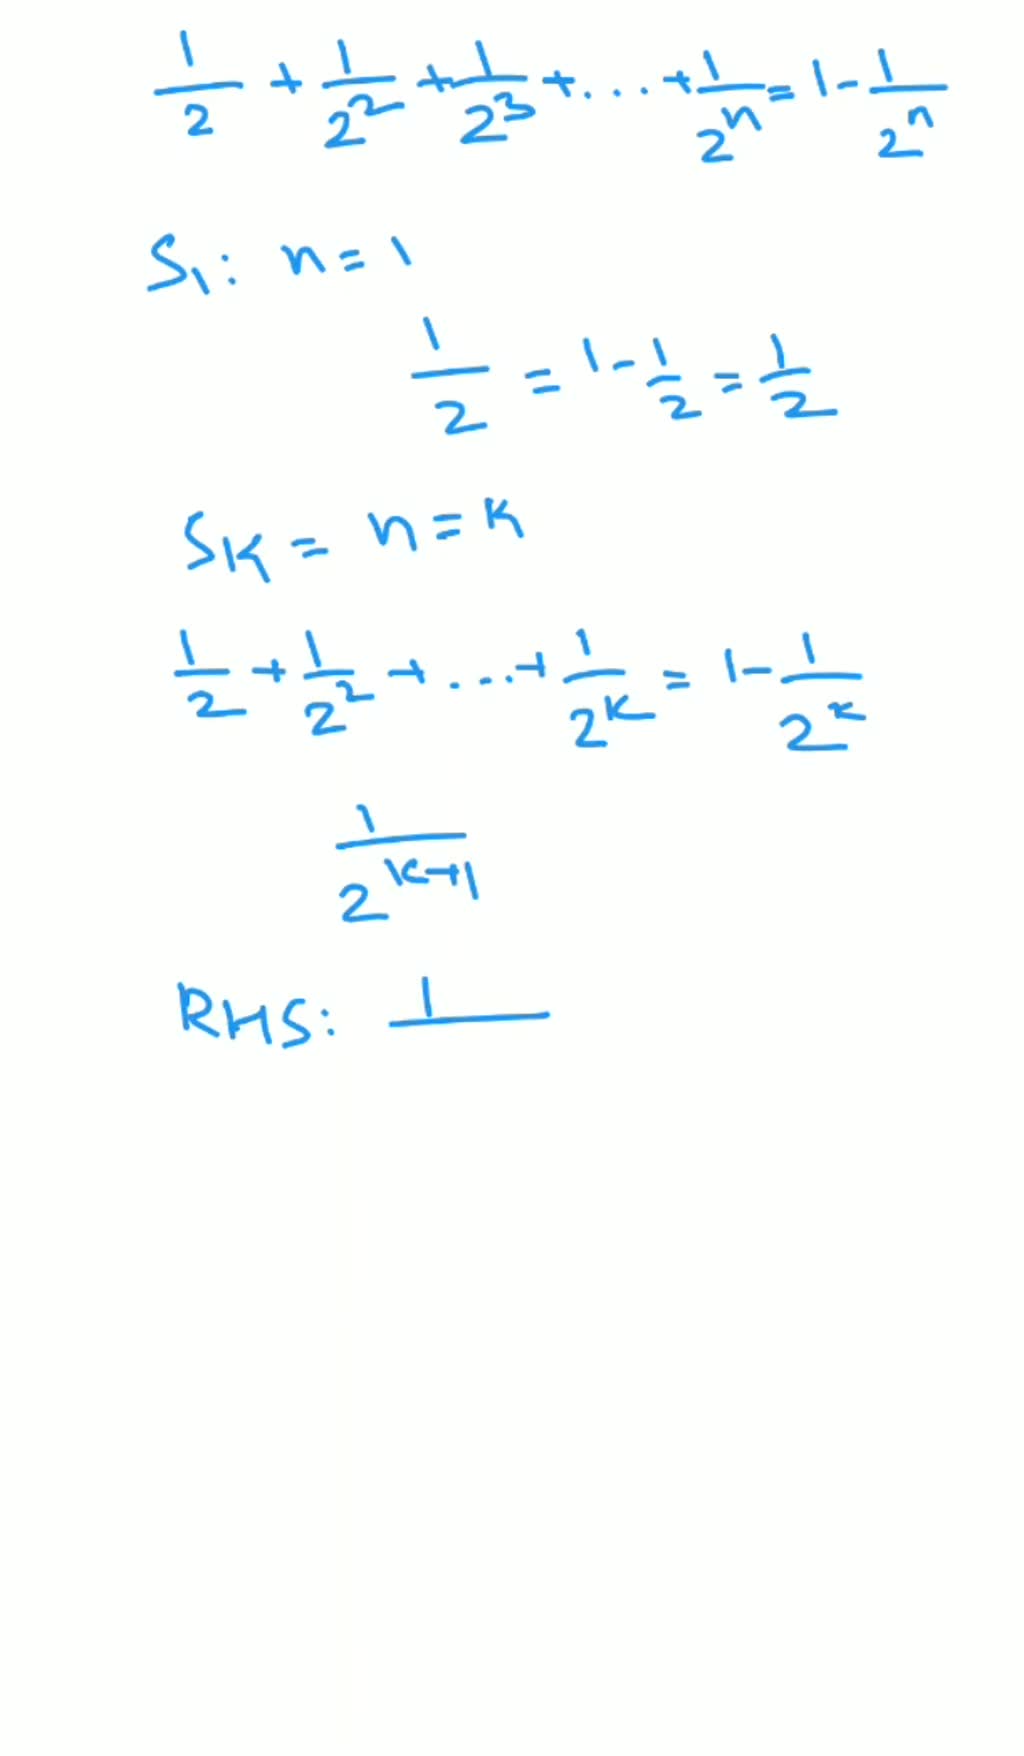 1/2 + 1/2² + 1/2³ + ... + 1/2ⁿ = 1 - 1/2ⁿ
S₁: n = 1
1/2 = 1 - 1/2 = 1/2
Sₖ = n = k
1/2 + 1/2² + ... + 1/2ᵏ = 1 - 1/2ᵏ
1/2ᵏ⁺¹
RHS: 1/